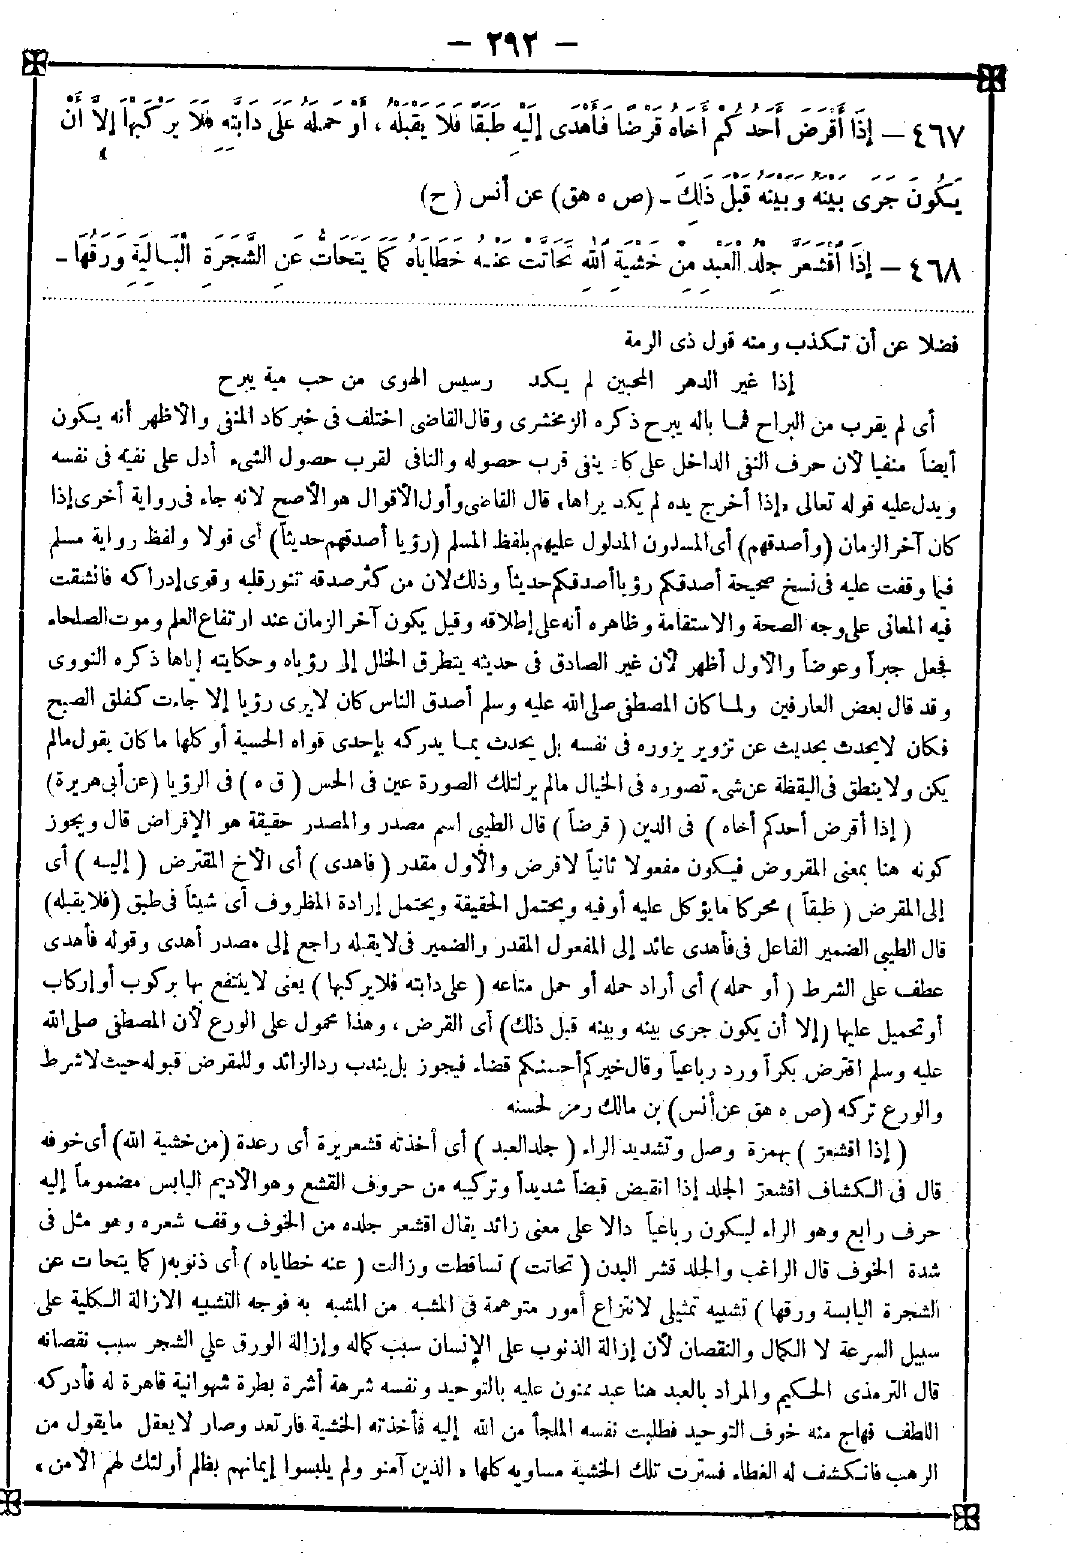 — ٢٩٢ —
٤٦٧ — إِذَا أَقْرَضَ أَحَدُكُمْ أَخَاهُ قَرْضًا فَأَهْدَى إِلَيْهِ طَبَقًا فَلَا يَقْبَلْهُ، أَوْ حَمَلَهُ عَلَى دَابَّتِهِ فَلَا يَرْكَبْهَا إِلَّا أَنْ
يَكُونَ جَرَى بَيْنَهُ وَبَيْنَهُ قَبْلَ ذَلِكَ - (ص ه هق) عن أنس (ح)
٤٦٨ — إِذَا اقْشَعَرَّ جِلْدُ الْعَبْدِ مِنْ خَشْيَةِ اللهِ تَحَاتَّتْ عَنْهُ خَطَايَاهُ كَمَا يَتَحَاتُّ عَنِ الشَّجَرَةِ الْبَالِيَةِ وَرَقُهَا -
فضلا عن أن تكذب ومنه قول ذى الرمة
إذا غير الدهر المحبين لم يكد رسيس الهوى من حب مية يبرح
أى لم يقرب من البراح فما باله يبرح ذكره الزمخشرى وقال القاضى اختلف فى خبر كاد المنفى والأظهر أنه يكون
أيضاً منفيا لأن حرف النفى الداخل على كاد ينفى قرب حصوله والنافى لقرب حصول الشىء أدل على نفيه فى نفسه
ويدل عليه قوله تعالى «إذا أخرج يده لم يكد يراها» قال القاضى وأول الأقوال هو الأصح لانه جاء فى رواية أخرى إذا
كان آخر الزمان (وأصدقهم) أى المسلمون المدلول عليهم بلفظ المسلم (رؤيا أصدقهم حديثاً) أى قولا ولفظ رواية مسلم
فيما وقفت عليه فى نسخ صحيحة أصدقكم رؤيا أصدقكم حديثاً وذلك لان من كثر صدقه تنور قلبه وقوى إدراكه فانتقشت
فيه المعانى على وجه الصحة والاستقامة وظاهره أنه على إطلاقه وقيل يكون آخر الزمان عند ارتفاع العلم وموت الصلحاء
فجعل جبراً وعوضاً والأول أظهر لأن غير الصادق فى حديثه يتطرق الخلل إلى رؤياه وحكايته إياها ذكره النووى
وقد قال بعض العارفين ولما كان المصطفى صلى الله عليه وسلم أصدق الناس كان لا يرى رؤيا إلا جاءت كفلق الصبح
فكان لا يحدث بحديث عن تزوير يزوره فى نفسه بل يحدث بما يدركه بإحدى قواه الحسية أو كلها ما كان يقول مالم
يكن ولا ينطق فى اليقظة عن شىء تصوره فى الخيال مالم ير لتلك الصورة عين فى الحس (ق ه) فى الرؤيا (عن أبى هريرة)
(إذا أقرض أحدكم أخاه) فى الدين (قرضاً) قال الطيبى اسم مصدر والمصدر حقيقة هو الإقراض قال ويجوز
كونه هنا بمعنى المقروض فيكون مفعولا ثانياً لاقرض والأول مقدر (فاهدى) أى الأخ المقترض (إليه) أى
إلى المقرض (طبقاً) محركا ما يؤكل عليه أو فيه ويحتمل الحقيقة ويحتمل إرادة المظروف أى شيئاً فى طبق (فلا يقبله)
قال الطيبى الضمير الفاعل فى فأهدى عائد إلى المفعول المقدر والضمير فى لا يقبله راجع إلى مصدر أهدى وقوله فأهدى
عطف على الشرط (أو حمله) أى أراد حمله أو حمل متاعه (على دابته فلا يركبها) يعنى لا ينتفع بها بركوب أو إركاب
أو تحميل عليها (إلا أن يكون جرى بينه وبينه قبل ذلك) أى القرض، وهذا محمول على الورع لأن المصطفى صلى الله
عليه وسلم اقترض بكراً ورد رباعياً وقال خيركم أحسنكم قضاء فيجوز بل يندب رد الزائد وللمقرض قبوله حيث لا شرط
والورع تركه (ص ه هق عن أنس) بن مالك رمز لحسنه
(إذا اقشعر) بهمزة وصل وتشديد الراء (جلد العبد) أى أخذته قشعريرة أى رعدة (من خشية الله) أى خوفه
قال فى الكشاف اقشعر الجلد إذا انقبض قبضاً شديداً وتركيبه من حروف القشع وهو الأديم اليابس مضموماً إليه
حرف رابع وهو الراء ليكون رباعياً دالا على معنى زائد يقال اقشعر جلده من الخوف وقف شعره وهو مثل فى
شدة الخوف قال الراغب والجلد قشر البدن (تحاتت) تساقطت وزالت (عنه خطاياه) أى ذنوبه (كما يتحات عن
الشجرة اليابسة ورقها) تشبيه تمثيلى لانتزاع أمور متوهمة فى المشبه من المشبه به فوجه التشبيه الازالة الكلية على
سبيل السرعة لا الكمال والنقصان لأن إزالة الذنوب على الإنسان سبب كماله وإزالة الورق على الشجر سبب نقصانه
قال الترمذى الحكيم والمراد بالعبد هنا عبد ممنون عليه بالتوحيد ونفسه شرهة أشرة بطرة شهوانية قاهرة له فأدركه
اللطف فهاج منه خوف التوحيد فطلبت نفسه الملجأ من الله إليه فأخذته الخشية فارتعد وصار لا يعقل ما يقول من
الرهب فانكشف له الغطاء فسترت تلك الخشية مساويه كلها «الذين آمنو ولم يلبسوا إيمانهم بظلم أولئك لهم الأمن»